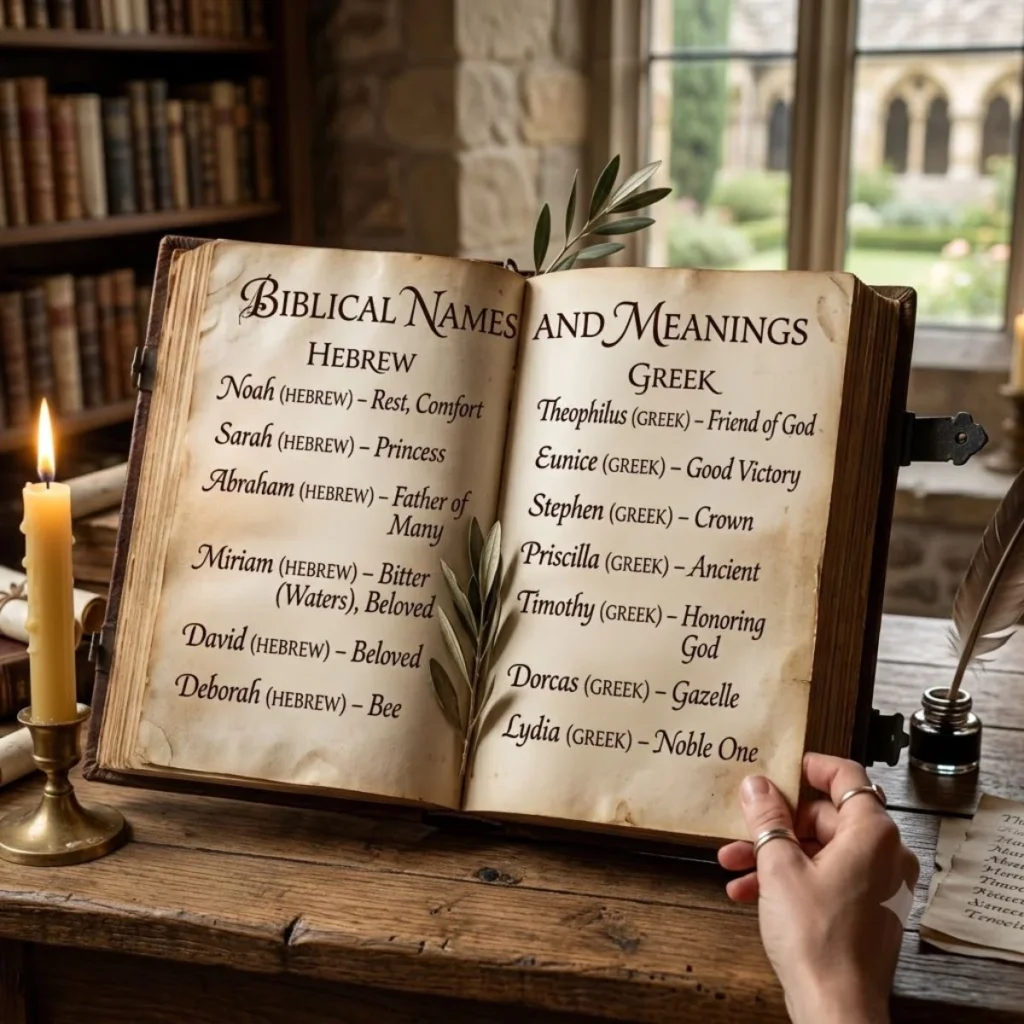 BIBLICAL NAMES
HEBREW
Noah (HEBREW) – Rest, Comfort
Sarah (HEBREW) – Princess
Abraham (HEBREW) – Father of
Many
Miriam (HEBREW) – Bitter
(Waters), Beloved
David (HEBREW) – Beloved
Deborah (HEBREW) – Bee
AND MEANINGS
GREEK
Theophilus (GREEK) – Friend of God
Eunice (GREEK) – Good Victory
Stephen (GREEK) – Crown
Priscilla (GREEK) – Ancient
Timothy (GREEK) – Honoring
God
Dorcas (GREEK) – Gazelle
Lydia (GREEK) – Noble One